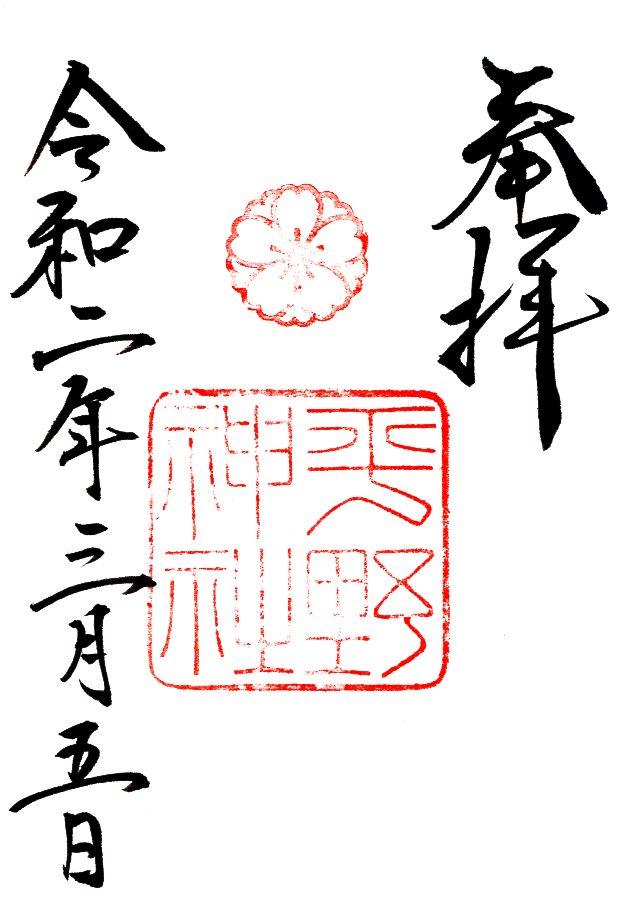 奉拝
平野
神社
令和二年三月五日